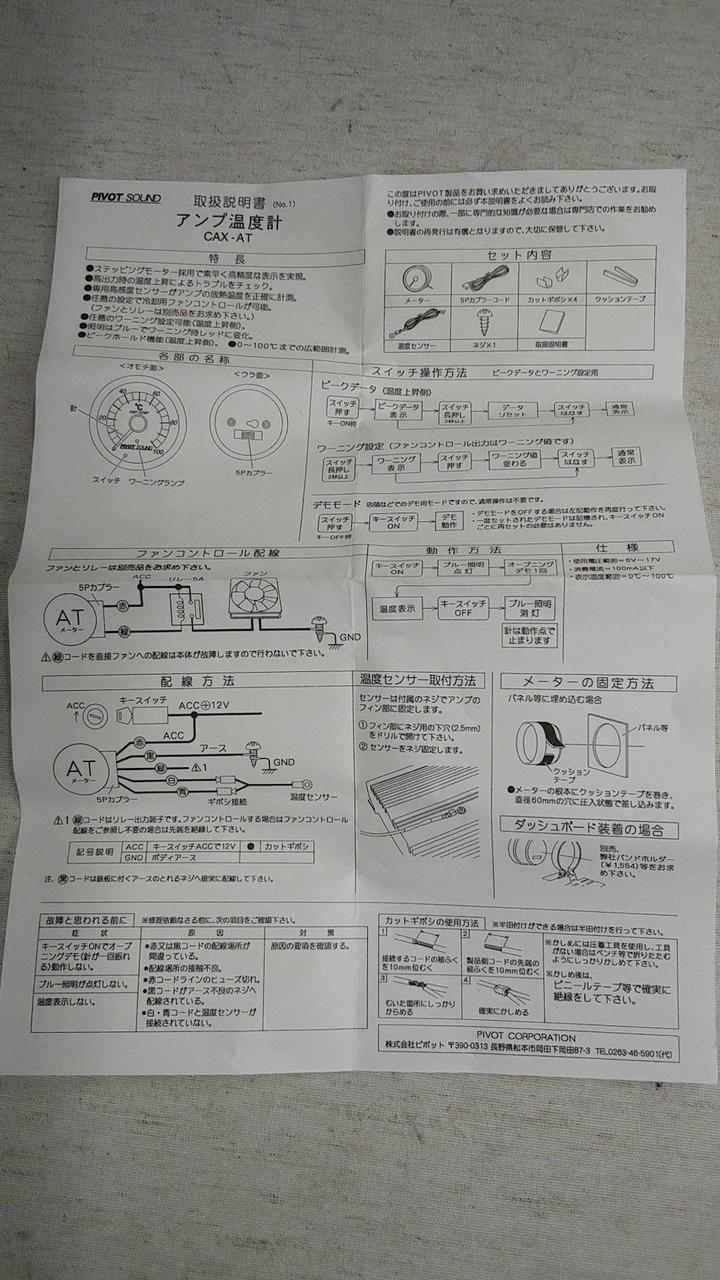 PIVOT SOUND 取扱説明書 (No.1)
アンプ温度計
CAX-AT
この度はPIVOT製品をお買い求めいただきましてありがとうございます。お取
り付け、ご使用の前には必ず本説明書をよくお読み下さい。
●お取り付けの際、一部に専門的な知識が必要な場合は専門店での作業をお勧め
します。
●説明書の再発行は有償となりますので、大切に保管して下さい。
特長
●ステッピングモーター採用で素早く高精度な表示を実現。
●高出力時の温度上昇によるトラブルをチェック。
●専用高感度センサーがアンプの放熱温度を正確に計測。
●任意の設定で冷却用ファンコントロールが可能。
(ファンとリレーは別売品をお求め下さい。)
●任意のワーニング設定可能(温度上昇側)。
●照明はブルーでワーニング時レッドに変化。
●ピークホールド機能(温度上昇側)。 ●0〜100℃までの広範囲計測。
セット内容
メーター
5Pカプラーコード
カットギボシ×4
クッションテープ
温度センサー
ネジ×1
取扱説明書
各部の名称
<オモテ面>
<ウラ面>
針
0 20 40 60 80 100
℃
AMP.TEMP
PIVOT SOUND
スイッチ
ワーニングランプ
5Pカプラー
スイッチ操作方法 ピークデータとワーニング設定用
ピークデータ (温度上昇側)
スイッチ押す
キーON時
ピークデータ表示
スイッチ長押し2秒以上
データリセット
スイッチはなす
通常表示
ワーニング設定 (ファンコントロール出力はワーニング値です)
スイッチ長押し2秒以上
ワーニング表示
スイッチ押す
ワーニング値変わる
スイッチはなす
通常表示
デモモード 店頭などでのデモ用モードですので、通常操作は不要です。
スイッチ押す
キーOFF時
キースイッチON
デモ動作
・デモモードをOFFする場合は左記動作を再度行って下さい。
・一度セットされたデモモードは記憶され、キースイッチON
ごとに再セットの必要はありません。
ファンコントロール配線
ファンとリレーは別売品をお求め下さい。
5Pカプラー
ACC
リレー5A
ファン
AT
メーター
赤
緑
GND
⚠緑コードを直接ファンへの配線は本体が故障しますので行わないで下さい。
動作方法
キースイッチON
ブルー照明点灯
オープニングデモ1回
温度表示
キースイッチOFF
ブルー照明消灯
針は動作点で止まります
仕様
・使用電圧範囲=6V〜17V
・消費電流=100mA以下
・表示温度範囲=0℃〜100℃
配線方法
ACC
キースイッチ
ACC⊕12V
ACC
赤
アース
黒
GND
緑
⚠1
白
青
AT
メーター
5Pカプラー
ギボシ接続
温度センサー
⚠1 緑コードはリレー出力端子です。ファンコントロールする場合はファンコントロール
配線をご参照し不要の場合は先端を絶縁して下さい。
記号説明 ACC キースイッチACCで12V ● カットギボシ
GND ボディアース
注、黒コードは鉄板に付くアースのとれるネジへ確実に配線して下さい。
温度センサー取付方法
センサーは付属のネジでアンプの
フィン部に固定します。
① フィン部にネジ用の下穴(2.5mm)
をドリルで開けて下さい。
② センサーをネジ固定します。
メーターの固定方法
パネル等に埋め込む場合
パネル等
クッション
テープ
●メーターの根本にクッションテープを巻き、
直径60mmの穴に圧入状態で差し込みます。
ダッシュボード装着の場合
別売、
弊社バンドホルダー
(¥1,554)等をお求
め下さい。
故障と思われる前に ※修理依頼なさる前に、次の項目をご確認下さい。
症状 原因 対策
キースイッチONでオープ
ニングデモ(針が一回振れ
る)動作しない。
ブルー照明が点灯しない。
温度表示しない。
●赤又は黒コードの配線場所が
間違っている。
●配線場所の接触不良。
●赤コードラインのヒューズ切れ。
●黒コードがアース不良のネジへ
配線されている。
●白・青コードと温度センサーが
接続されていない。
原因の要項を確認する。
カットギボシの使用方法 ※半田付けができる場合は半田付けを行って下さい。
1
接続するコードの被ふく
を10mm位むく
2
製品側コードの先端の
被ふくを10mm位むく
3
むいた箇所にしっかり
からめる
4
確実にかしめる
※かしめには圧着工具を使用し、工具
がない場合はペンチ等で折りたたむ
ようにしっかりかしめて下さい。
※かしめ後は、
ビニールテープ等で確実に
絶縁をして下さい。
PIVOT CORPORATION
株式会社ピボット 〒390-0313 長野県松本市岡田下岡田87-3 TEL0263-46-5901(代)